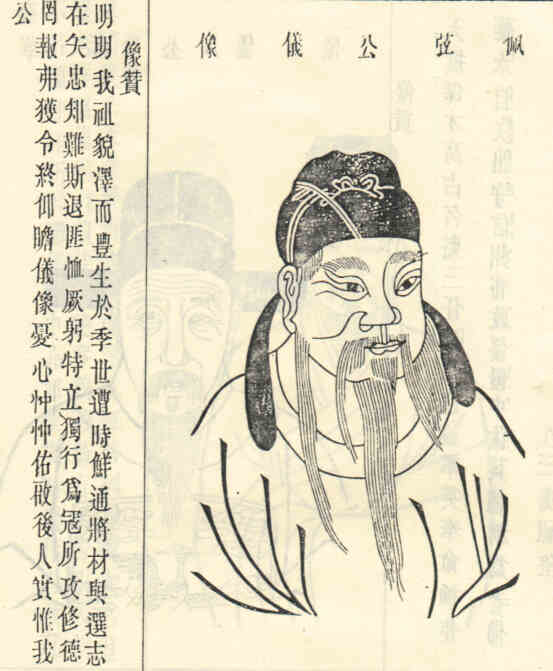 佩弦公儀像
像贊
明明我祖貌澤而豐生於季世遭時鮮通將材與選志
在矢忠知難斯退匪恤厥躬特立獨行爲冠所攻修德
罔報弗獲令終仰瞻儀像憂心忡忡佑啟後人實惟我
公